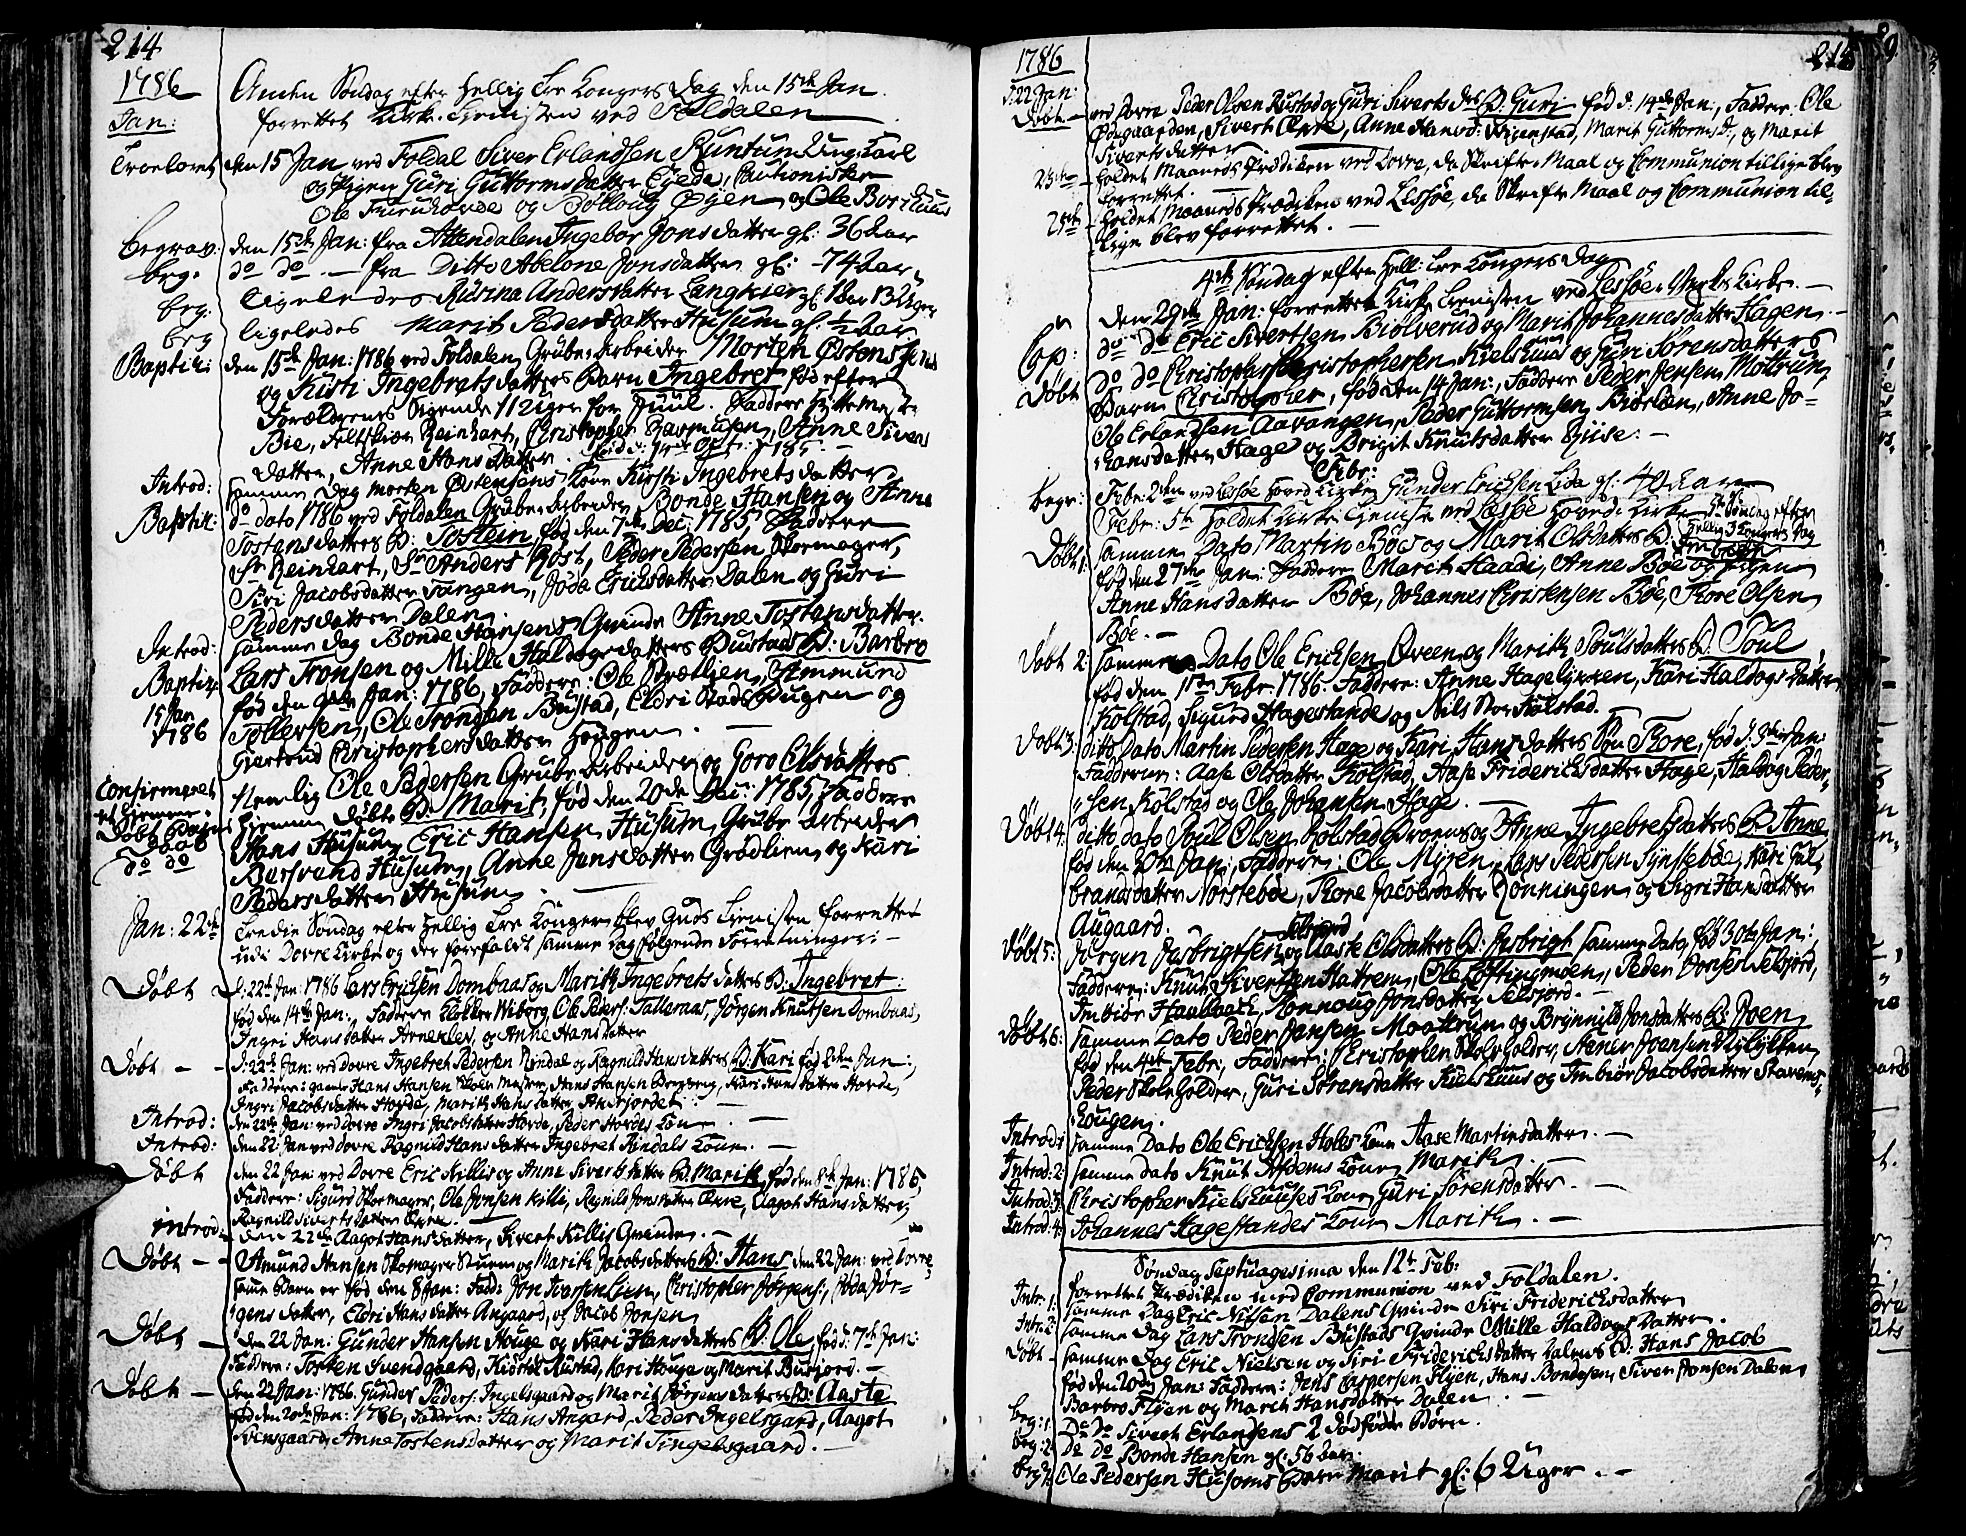 214
1786
Jan:
Anden Søndag efter Hellig Tre Kongers Dag den 15de Jan
forrettet Kirke Tienisten ved Foldalen
Troelovet den 15 Jan ved Foldal Siver Erlandsen Runtun Ung Karl
og Pigen Guri Guttormsdatter Cautionister
Ole Furuhovde og Øyen og Ole Borkhuus
begrav: den 15de Jan: fra Attendalen Ingebor Jonsdatter gl: 36 Aar
beg. do do — fra Ditto Abelone Jonsdatter gl: 74 Aar
beg: ligeledes Rusina Andersdatter gl: 1 Aar 13 Uger
beg ligeledes Marit Pedersdatter Husum gl: ½ Aar
Baptiz: den 15de Jan: 1786 ved Foldalen Grube Arbeider Morten Østensens
og Kisti Ingebretsdatters Barn Ingebret fød efter
Forældrenes Sigende 11 Uger for Juul. Faddere Hyttemester
Bie, Feltskiær Reinhart, Christopher Rasmusen, Anne Sivers
datter, Anne Hans Datter. fød d: 14de Oct: 1785. —
Introd: Samme Dag Morten Østensens Kone Kirsti Ingebrets datter
Baptiz: do dato 1786 ved Foldalen Grube Arbeider Bonde Hansen og Anne
Tostensdatters B: Tostein fød den 7de Dec: 1785, Faddere
Sr Reinhart, Sr Anders Røst, Peder Pedersen Skomager,
Siri Jacobsdatter Tangen, Jøda Ericksdatter Dalen og Guri
Pedersdatter Dalen.
Introd: Samme Dag Bonde Hansens Qvinde Anne Tostansdatter.
Baptiz: Lars Tronsen og Mille Haldogsdatters Bustad B: Barbro
15 Jan fød den Jan: 1786, Faddere: Ole Brætlien, Ammund
1786 Tollefsen, Ole Tronsen Bustad, Eldri Stadsbuøyen og
Giertrud Christophersdatter Hougen. —
Confirmeret Nemlig Ole Pedersen Grube Arbeider og Goro Olsdatters
et Hiemme hiemme døbt B: Marit, fød den 20de Dec: 1785, Faddere
Døbt Barn Hans Husum, Eric Hansen Husum, Grube Arbeider
do do Husum, Anne Jansdatter Grødlien, og Kari
Pedersdatter Husum. —
Jan: 22de Tredie Søndag efter Hellig Tre Konger blev Guds Tienisten forrettet
udi Dovre Kirke og der forefaldt samme Dag følgende Forretninger: —
Døbt D: 22de Jan: 1786 Lars Ericksen Dombaas og Marith Ingebretsdatters B: Ingebret.
fød den 14de Jan:, Faddere Klokker Wiborg, Ole Peders: Talleraas, Jørgen Knutsen Dombaas,
Ingri Hansdatter og Anne Hansdatter
Døbt — — d: 22de Jan: ved Dovre Ingebret Pedersen Rindal og Ragnild Hansdatters B: Kari fød 2den Jan:,
Faddere: gamle Hans Hansen Skole Mester, Hans Hansen Kari Hansdatter Hovde,
Ingri Jacobsdatter Hovde, Marith Hansdatter
Introd: den 22de Jan: ved Dovre Ingri Jacobsdatter Hovde, Peder Hovdes Kone —
Introd: den 22 Jan: ved Dovre Ragnild Hansdatter Ingebret Rindals Kone. —
Døbt den 22 Jan: ved Dovre Eric Killis og Anne Sivertsdatter B: Marith, fød den 8de Jan: 1786,
Faddere: Sigurd Skomager, Ole Jonsen Killi, Ragnild Jonsdatter Aagot Hansdatter,
Ragnild Siverts datter
introd: den 22de Aagot Hansdatter, Sivert Killis Qvinde. —
Døbt — — Amund Hansen Skomager og Marith Jacobsdatters B: Hans den 22 Jan: ved Dovre,
Barn er fød den 8 Jan: Fadd: Jon Iversen Lien, Christopher Jørgens:, Jøda Jør-
gens datter, Eldri Hansdatter Angaard, og Jacob Jonsen
Døbt — den 22 Jan: Gunder Hansen Houge og Kari Hansdatters B: Ole, fød d: 7de Jan:
Faddere: Tosten Svendgaard, Rustad, Kari Houge og Marit —
Døbt — den 22 Jan: 1786. Gunder Peders: Ingelsgaard og Marit Jørgens datters B: Aaste
fød den 20de Jan: 1786, Faddere: Hans Angard, Peder Ingelsgard, Aagot
Svensgaard, Anne Tostensdatter og Marit Tingelsgaard. —
1786
215
d: 22 Jan: Døbt — ved Dovre Peder Olsen Rustad og Guri Siverts dtr B: Guri fød d: 14de Jan:, Faddere. Ole
Ødegaarden, Sivert Anne Hansd: Marit Guttormsd:, og Marit
Sivertsdatter
23de — holdet Maaneds Prædiken ved Dovre, da Skrifte Maal og Communion tillige blev
forrettet. —
25de — holdet Maaneds Prædiken ved Lessøe, da Skrifte Maal og Communion til-
lige blev forrettet. —
4de Søndag efter Hell: Tre Kongers Dag
Den 29de Jan: forrettet Kirke Tienisten ved Lessøe Værks Kirke. —
Cop: do do Eric Sivertsen Biølverud og Marit Johannesdatter Hagen. —
Døbt do do Christopher Christophersen Kielshuus og Guri Sørensdatters
Barn Christopher, fød den 14 Jan:, Faddere Peder Jensen Mottrun,
Ole Erlandsen Aavangen, Peder Guttormsen Anne Jo-
hansdatter Hage og Brigit Knutsdatter —
Febr:
begr: Febr: 2den ved Lessøe Hoved Kirke Gunder Ericksen Lida gl: 40 Aar
Febr: 5te holdet Kirke Tieniste ved Lessøe Hoved Kirke 5te Søndag efter
Hellig 3 Kongers Dag
Døbt 1. Samme Dato Martin Bøes og Marit Olsdatters B: Imbiør
fød den 27de Jan: Faddere Marit Haadi, Anne Bøe og Pigen
Anne Hansdatter Bøe, Johannes Christensen Bøe, Tore Olsen
Bøe. —
Døbt 2: Samme Dato Ole Ericksen Øveen og Marith Poulsdatters B: Poul
fød den 1ste Febr. 1786. Faddere: Anne Kari Haldogsdatter
Kolstad, Sigurd Hagestande og Nils Kolstad.
Døbt 3. ditto Dato Martin Pedersen Hage og Kari Hansdatters Søn Tore, fød d. Jan:
Fadderne: Aase Olsdatter Kolstad, Aase Fridericksdatter Hage, Haldog Peder-
sen Kolstad og Ole Johansen Hage. —
Døbt 4: ditto dato Poul Olsen Kolstad og Anne Ingebretsdatters B: Anne
fød den 30te Jan: Faddere: Ole Myren, Lars Pedersen Synstebøe, Kari Gul-
brandsdatter Norstebøe, Tore Jacobsdatter Rønningen og Sigri Hansdatter
Augaard.
Døbt 5: Jørgen Jusbrigtsen Selsjord og Aaste Olsdatters B: Jusbrigt samme Dato, fød 30te Jan:
Faddere: Knut Sivertsen Hattrem, Ole Løftingsmoen, Peder Selsjord,
Imbiør Haabach, Rønnoug Jonsdatter Selsjord. —
Døbt 6: Samme Dato Peder Jansen Moattrun og Brynnild Jonsdatters B: Joen
fød den 4de Febr:, Faddere: Christopher Skole Holder, Joensen
Peder Skole Holder, Guri Sørensdatter Kielshuus og Imbiør Jacobsdatter Stavems-
hougen.
Introd: 1 Samme Dato Ole Ericksen Holes Kone Aase Martinsdatter. —
Introd: 2: Samme dato Knut Kone Marith. —
Introd: 3: Christopher Kielshuuses Kone Guri Sørensdatter. —
Introd: 4: Johannes Hagestandes Kone Marith. —
Søndag Septuagesima den 12te Feb:
forrettet Prædiken med Communion ved Foldalen.
Intr: 1. Samme Dag Eric Nilsen Dalens Qvinde Siri Fridericksdatter
Intr: 2: Samme Dag Lars Tronsen Bustads Qvinde Mille Haldogs Datter.
Døbt — Samme Dag Eric Nielsen og Siri Fridericksdatter Dalens B: Hans Jacob
fød den 20de Jan: Faddere: Jens Jaspersen Flyen, Hans Bondesen, Siver Jonsen Dalen,
Barbro Fløen og Marit Hansdatter Dalen.
beg: 1. Do Do Sivert Erlandsens 2 dødfødde Børn.
beg: 2. Do Do Bonde Hansen gl: 56 Aar.
beg: Ole Pedersen Husoms Barn Marit gl: 6 Uger. —